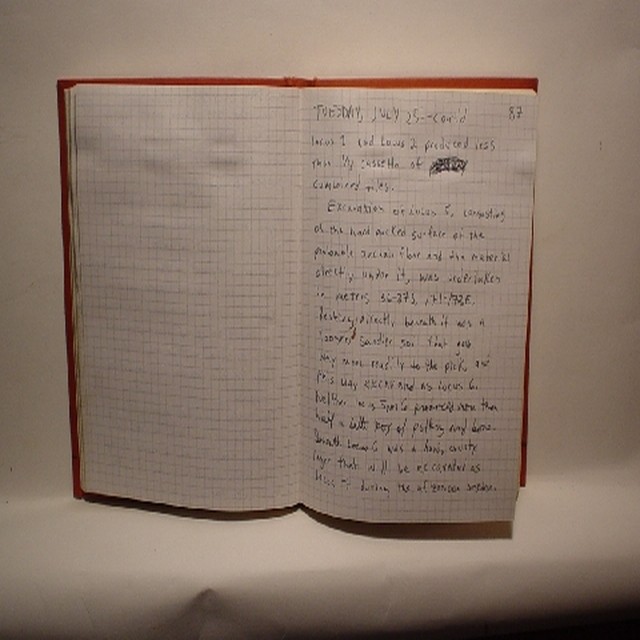 TUESDAY, JULY 25--cont'd 87
Locus 1 and Locus 2 produced less
than 1/4 cassette of
combined tiles.
Excavation of Locus 5, consisting
of the hard packed surface of the
probable floor and the material
directly under it, was undertaken
in meters 36-37S,
Resting directly beneath it was a
looser, sandier soil that gave
way more readily to the pick, and
this was excavated as Locus 6.
Neither Locus 5 nor 6 produced more than
half a of pottery and bone.
Beneath Locus 6 was a hard,
layer that will be excavated as
Locus 7 during the afternoon session.